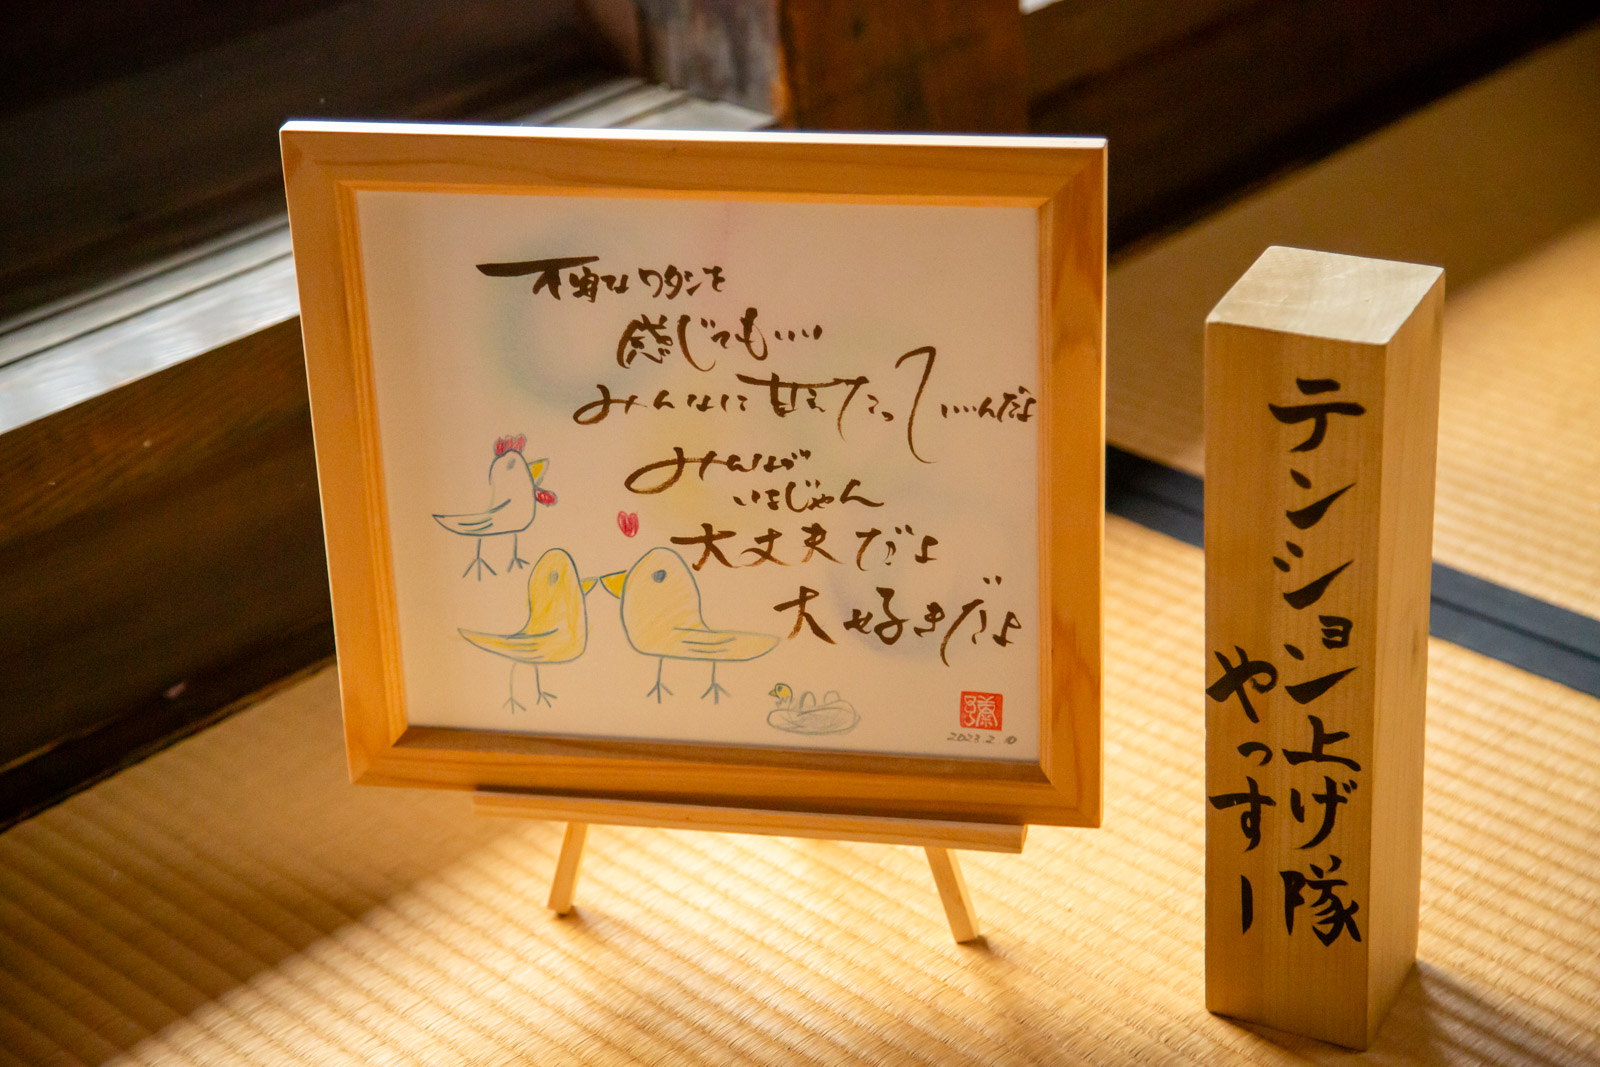 不甲斐なワタシを
感じてもいい
みんなに甘えたっていいんだよ
みんなが
いるじゃん
大丈夫だよ
大好きだよ
2023.2.10
テンション上げ隊
やっすー